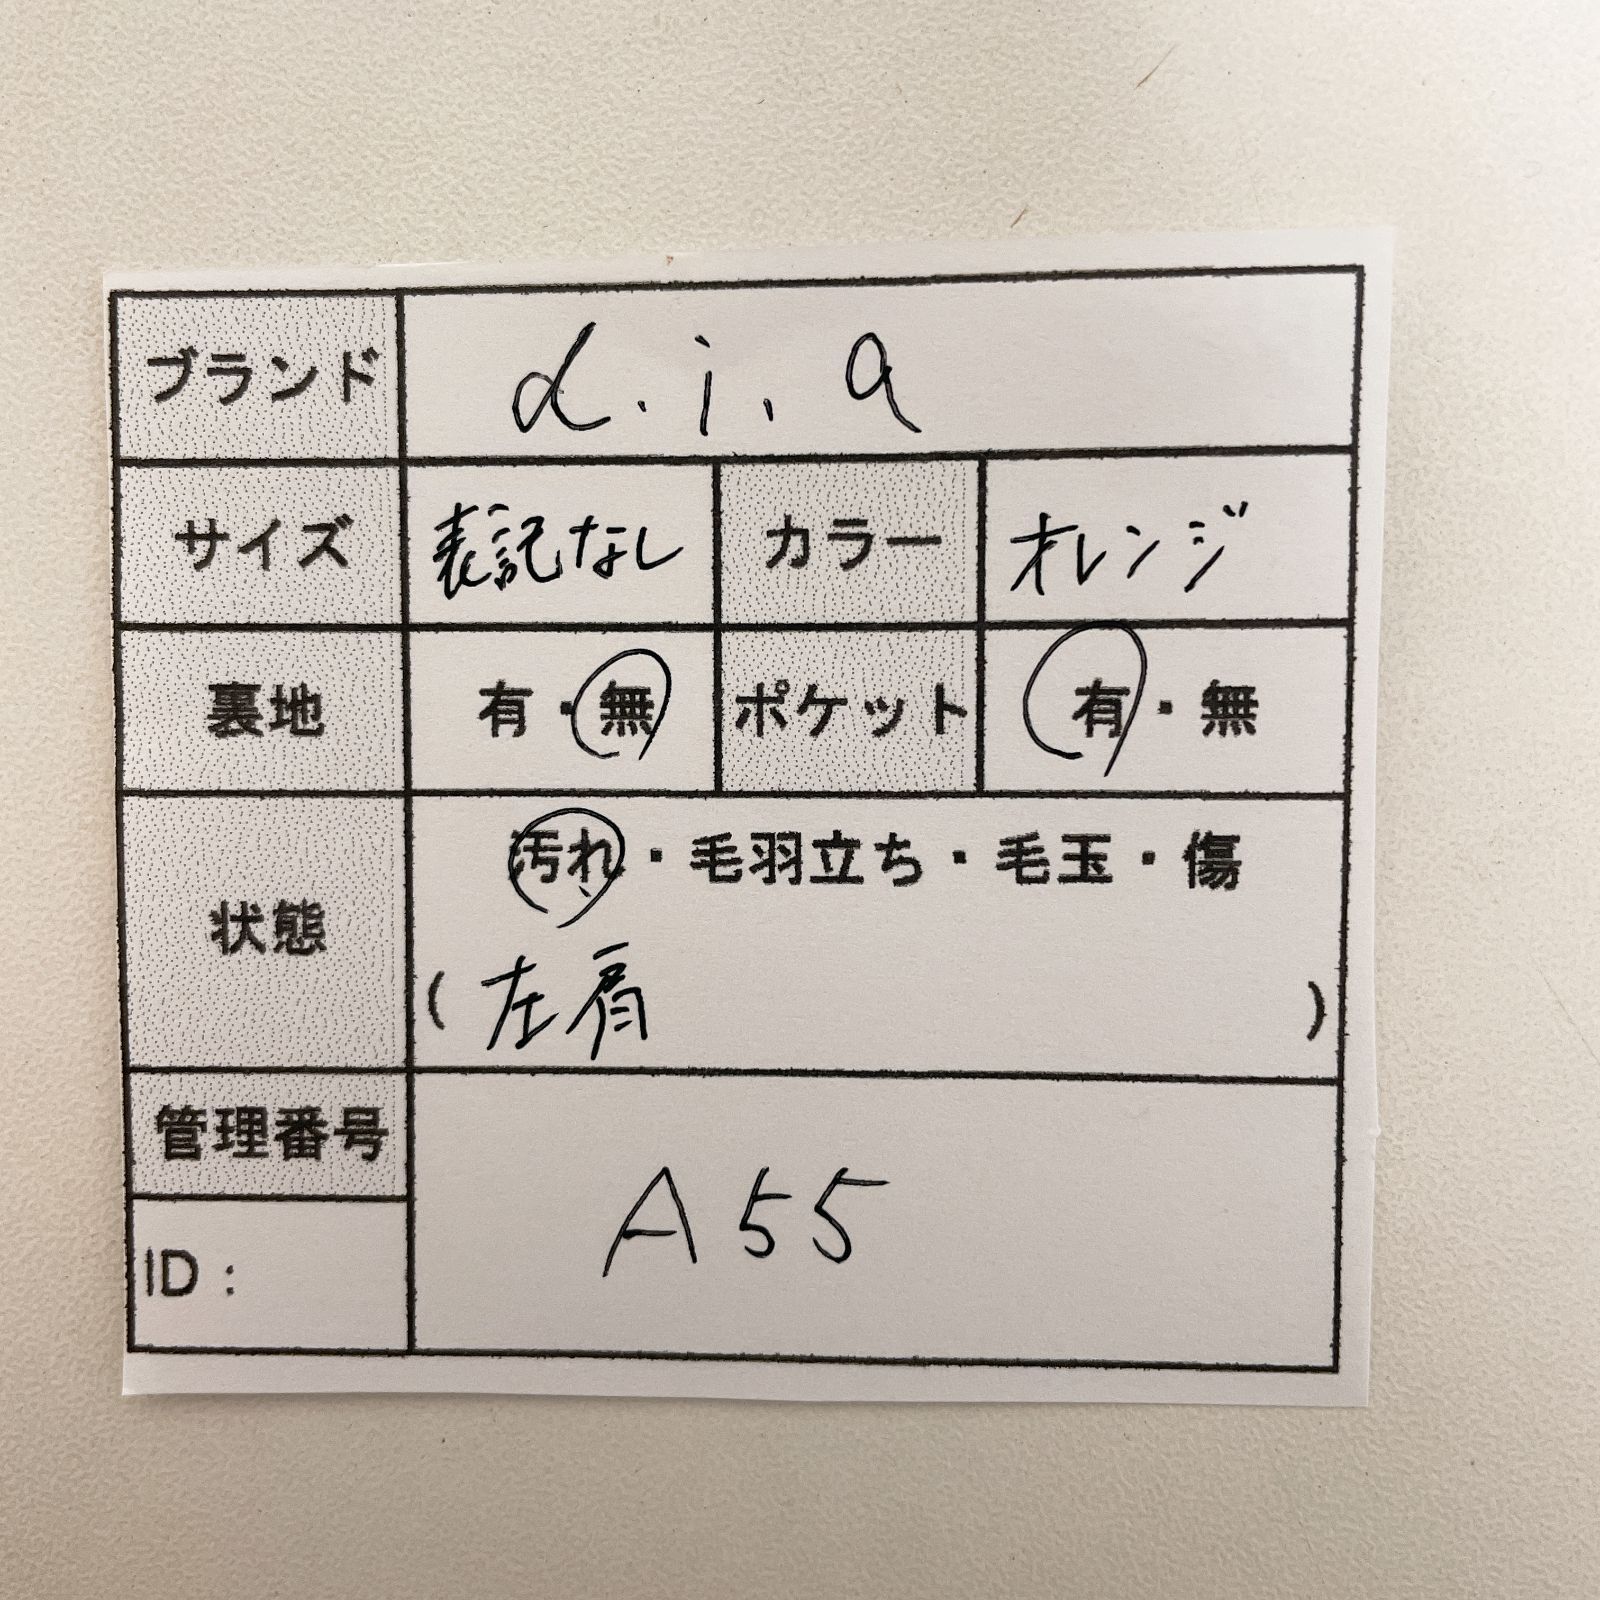 ブランド d.i.a
サイズ 表記なし カラー オレンジ
裏地 有・無 ポケット 有・無
状態 汚れ・毛羽立ち・毛玉・傷
(左肩)
管理番号 A55
ID: